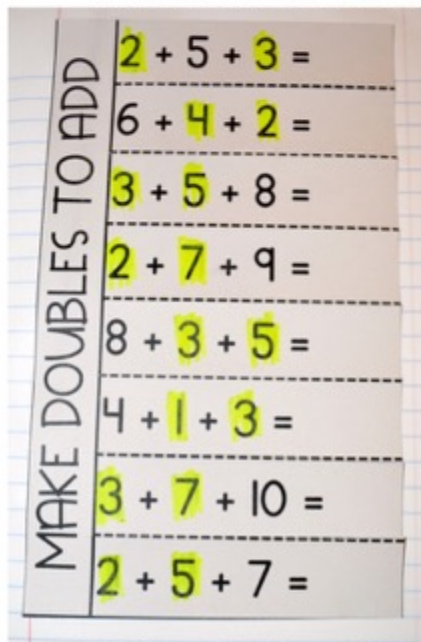 MAKE DOUBLES TO ADD
2 + 5 + 3 =
6 + 4 + 2 =
3 + 5 + 8 =
2 + 7 + 9 =
8 + 3 + 5 =
4 + 1 + 3 =
3 + 7 + 10 =
2 + 5 + 7 =